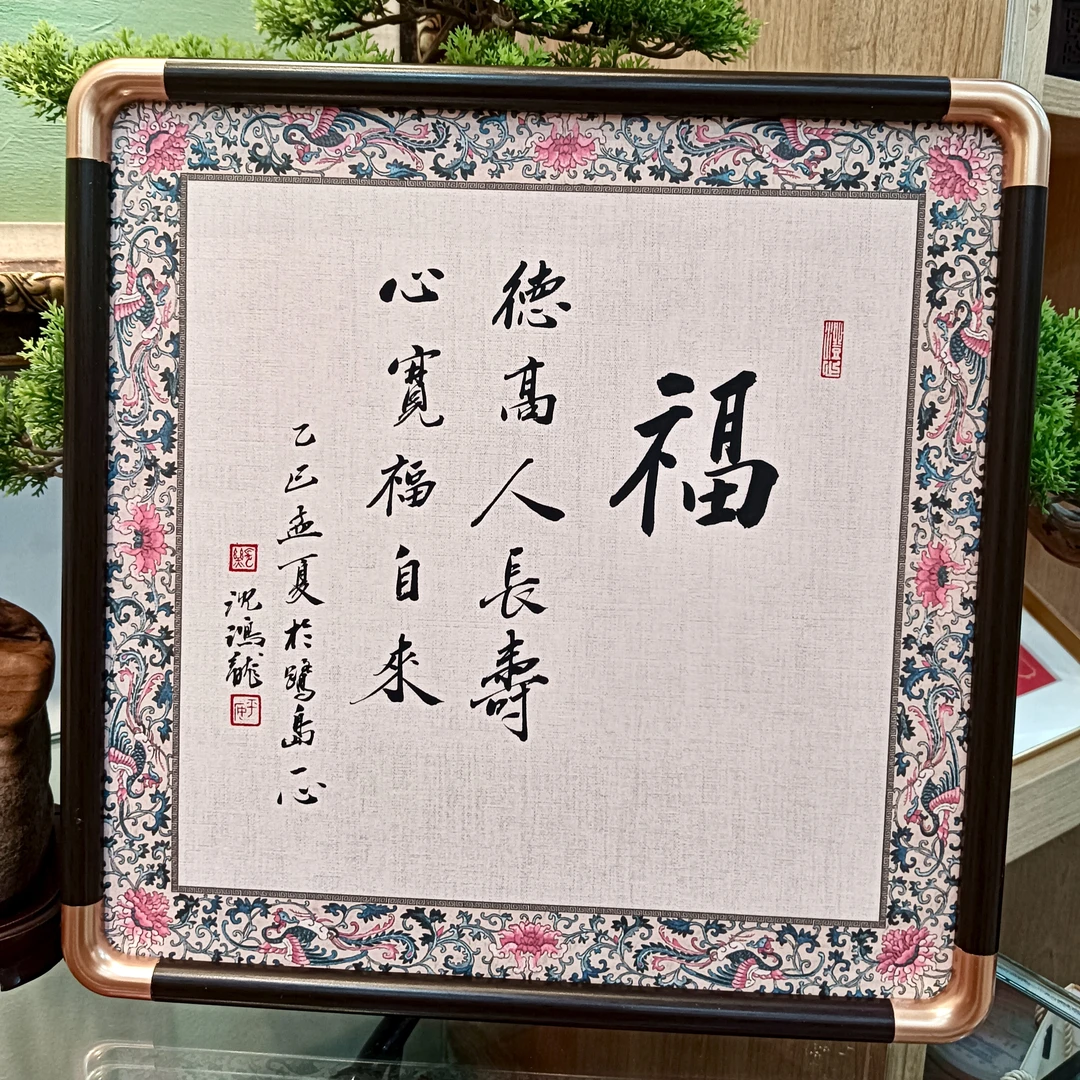 福
德高人長壽
心寬福自來
乙巳孟夏於鷺島
沈鴻龍